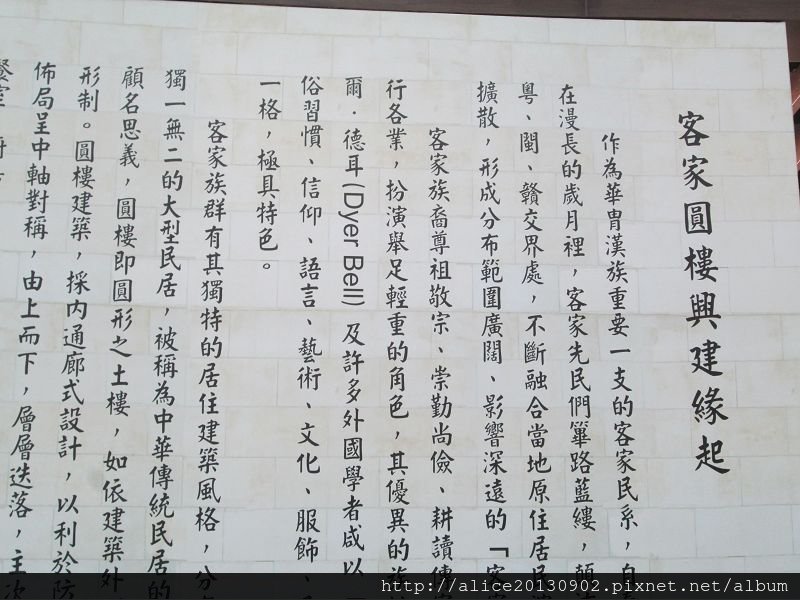 客家圓樓興建緣起
作為華胄漢族重要一支的客家民系，自
在漫長的歲月裡，客家先民們篳路藍縷，
粵、閩、贛交界處，不斷融合當地原住居民
擴散，形成分布範圍廣闊、影響深遠的「客家
客家族裔尊祖敬宗、崇勤尚儉、耕讀傳
行各業，扮演舉足輕重的角色，其優異的
爾．德耳(Dyer Bell) 及許多外國學者咸以
俗習慣、信仰、語言、藝術、文化、服飾、
一格，極具特色。
客家族群有其獨特的居住建築風格，分
獨一無二的大型民居，被稱為中華傳統民居的
顧名思義，圓樓即圓形之土樓，如依建築外
形制。圓樓建築，採內通廊式設計，以利於防
佈局呈中軸對稱，由上而下，層層迭落，主次
http://alice20130902.pixnet.net/album